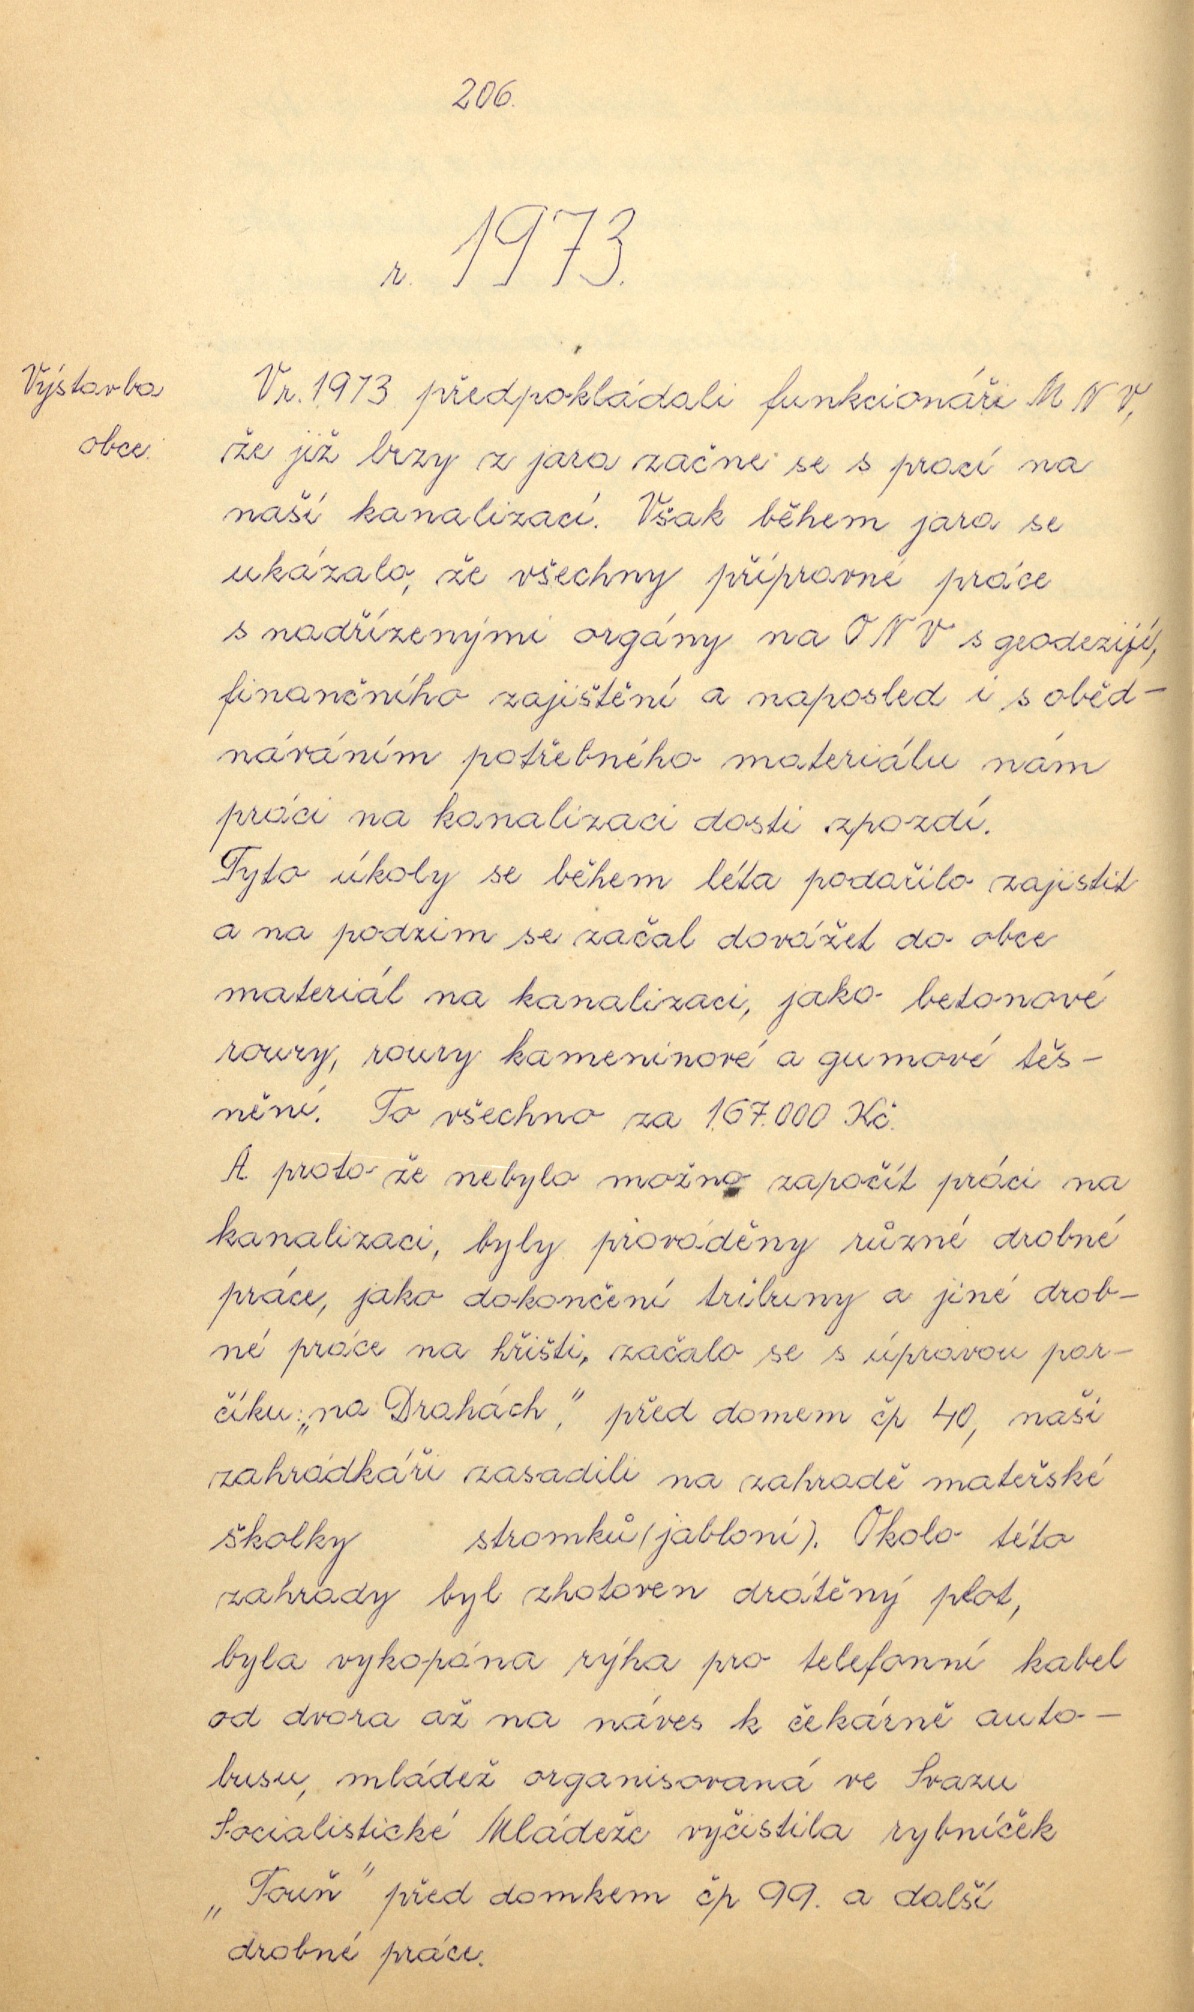 206.
r. 1973.
Výstavba
obce.
V r. 1973 předpokládali funkcionáři M N V,
že již brzy z jara začne se s prací na
naší kanalizací. Však během jara se
ukázalo, že všechny přípravné práce
s nadřízenými orgány na O N V s geodezijí,
finančního zajištění a naposled i s oběd-
náváním potřebného materiálu nám
práci na kanalizaci dosti zpozdí.
Tyto úkoly se během léta podařilo zajistit
a na podzim se začal dovážet do obce
materiál na kanalizaci, jako betonové
roury, roury kameninové a gumové těs-
nění. To všechno za 167.000 Kč.
A proto že nebylo možno započít práci na
kanalizaci, byly prováděny různé drobné
práce, jako dokončení tribuny a jiné drob-
né práce na hřišti, začalo se s úpravou par-
číku „na Drahách", před domem čp 40, naši
zahrádkáři zasadili na zahradě mateřské
školky stromků (jabloní). Okolo této
zahrady byl zhotoven drátěný plot,
byla vykopána rýha pro telefonní kabel
od dvora až na náves k čekárně auto-
busu, mládež organisovaná ve Svazu
Socialistické Mládeže vyčistila rybníček
„Touň" před domkem čp 99. a další
drobné práce.